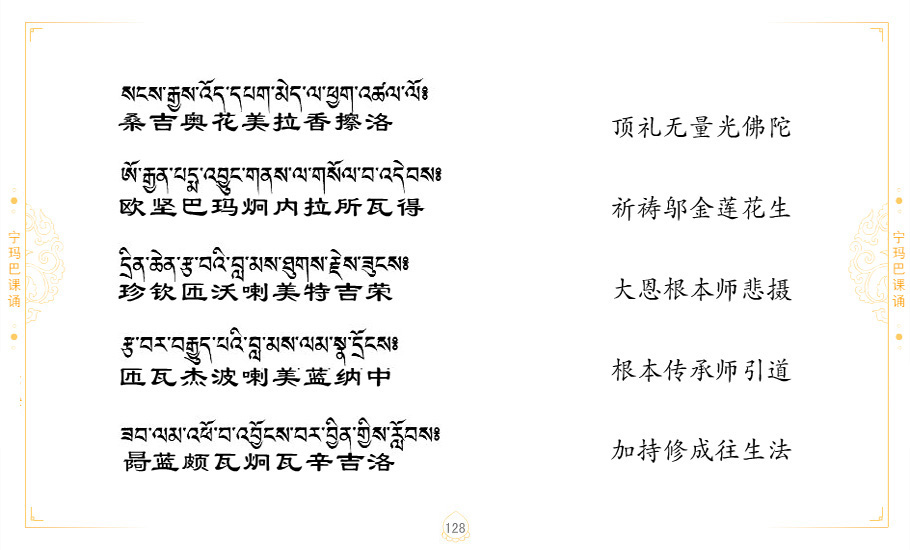 སངས་རྒྱས་འོད་དཔག་མེད་ལ་ཕྱག་འཚལ་ལོ༔
桑吉奥花美拉香擦洛
顶礼无量光佛陀
ཨོ་རྒྱན་པདྨ་འབྱུང་གནས་ལ་གསོལ་བ་འདེབས༔
欧坚巴玛炯内拉所瓦得
祈祷邬金莲花生
དྲིན་ཆེན་རྩ་བའི་བླ་མས་ཐུགས་རྗེས་ཟུངས༔
珍钦匝沃喇美特吉荣
大恩根本师悲摄
རྩ་བར་བརྒྱུད་པའི་བླ་མས་ལམ་སྣ་དྲོངས༔
匝瓦杰波喇美蓝纳中
根本传承师引道
ཟབ་ལམ་འཕོ་བ་འབྱོངས་བར་བྱིན་གྱིས་རློབས༔
蓝颇瓦炯瓦辛吉洛
加持修成往生法
宁玛巴课诵
宁玛巴课诵
128